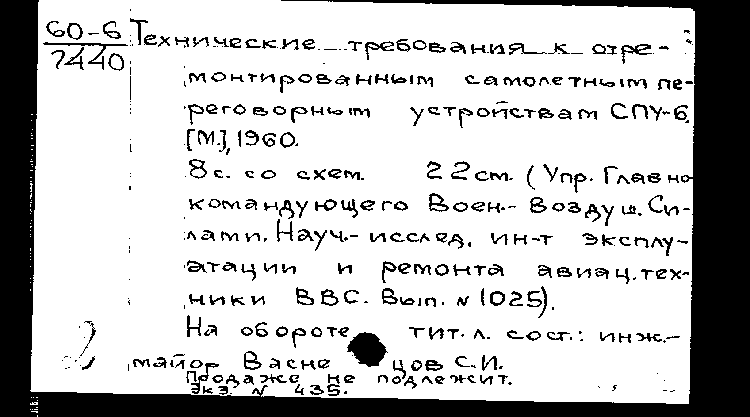 60-6 Технические требования к отре-
7440
монтированным самолетным пе-
реговорным устройствам СПУ-6.
[М.], 1960.
8 с. со схем. 22 см. (Упр. Главно
командующего Воен.- Воздуш. Си-
лами. Науч.- исслед. ин-т эксплу-
атации и ремонта авиац. тех-
ники ВВС. Вып. № 1025).
На обороте тит. л. сост.: инж.-
майор Васне цов С.И.
Продаже не подлежит.
Экз. № 435.
2